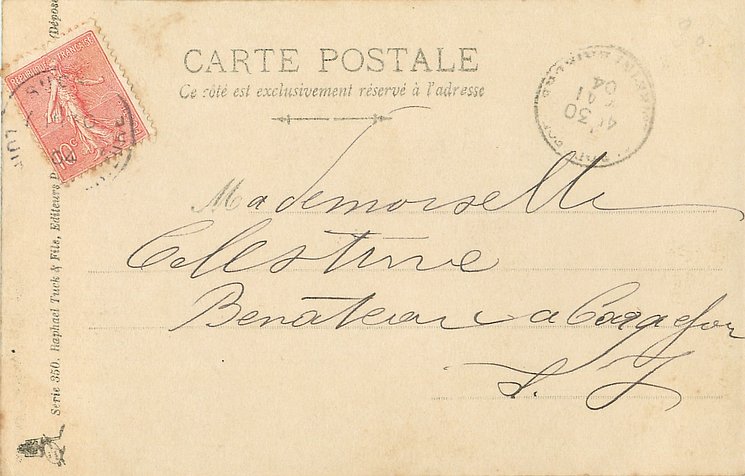 CARTE POSTALE
Ce côté est exclusivement réservé à l'adresse
REPUBLIQUE FRANÇAISE
10c
30
41
04
Mademoiselle
Célestine
Benâteau a
S. I
Série 350. Raphael Tuck & Fils, Editeurs (Déposé